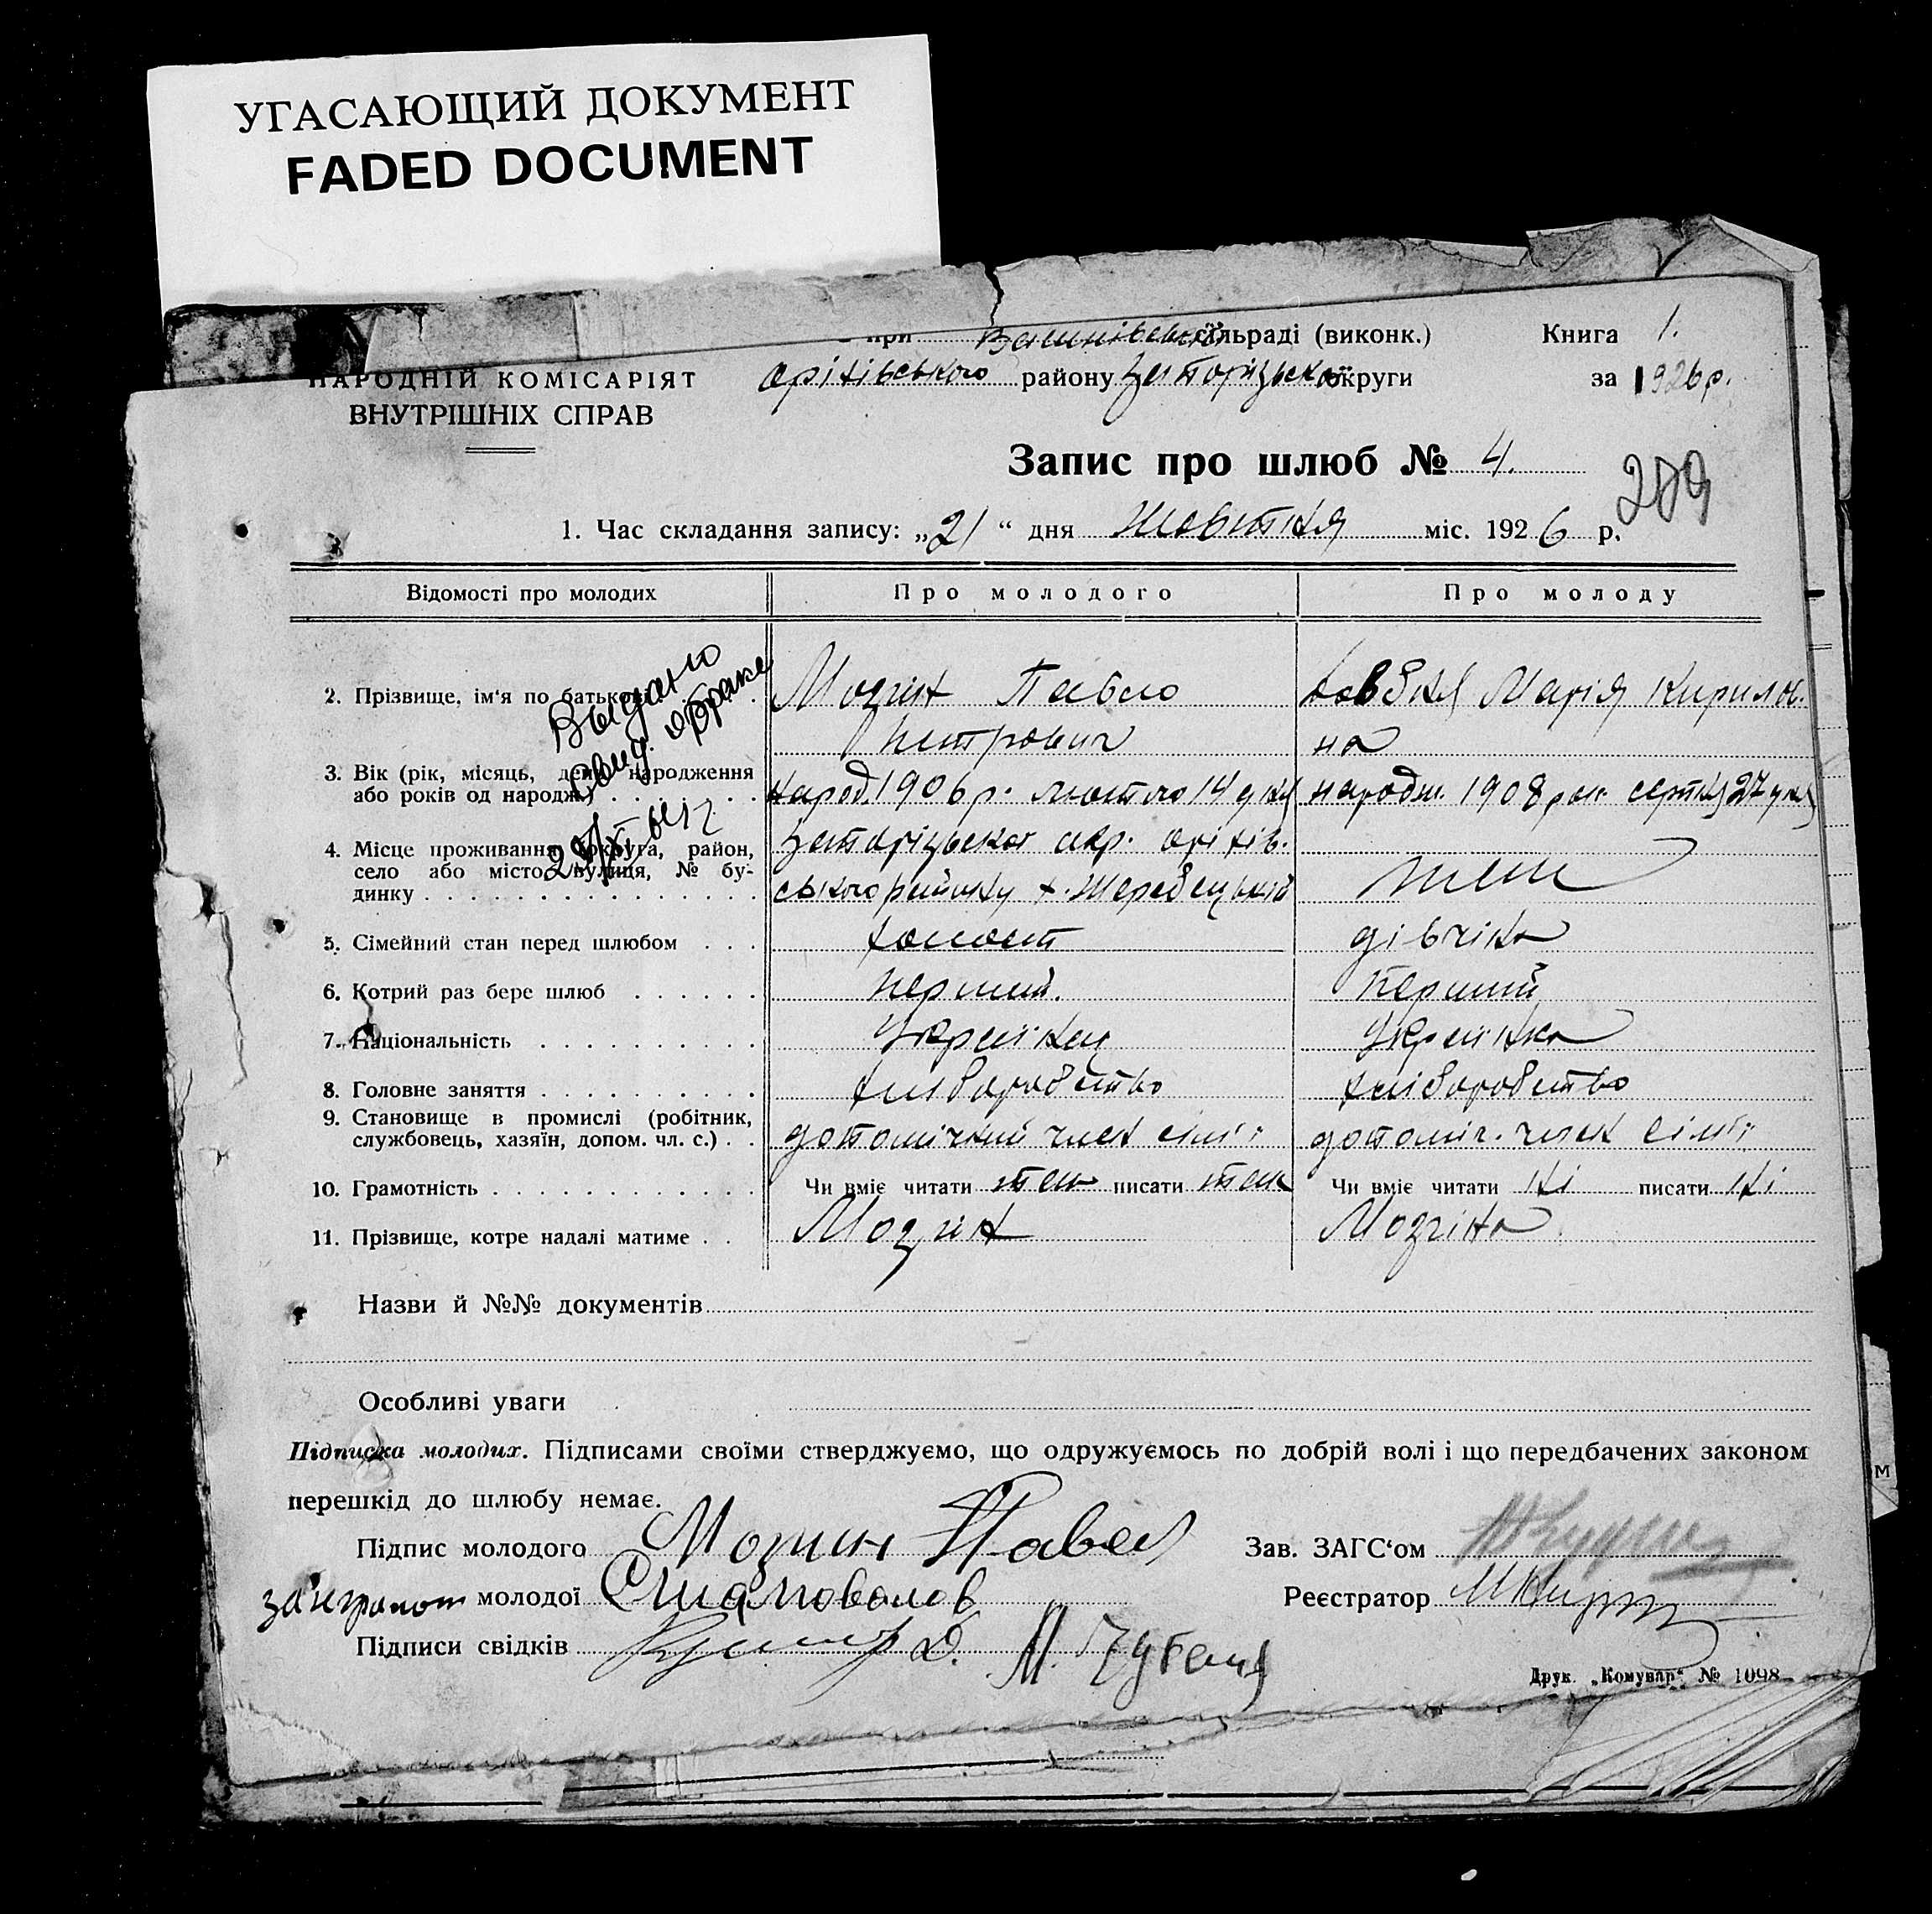 УГАСАЮЩИЙ ДОКУМЕНТ
FADED DOCUMENT
при сільраді (виконк.) Книга 1.
НАРОДНІЙ КОМІСАРІЯТ
ВНУТРІШНІХ СПРАВ
оріхівського району Запорізької округи за 1926 р.
Запис про шлюб № 4.
289
1. Час складання запису: „21“ дня Жовтня міс. 1926 р.
Відомості про молодих Про молодого Про молоду
Выдано
свид. о браке
2. Прізвище, ім'я по батькові . Мозгін Павло Марія Кирилів-
Петрович на
3. Вік (рік, місяць, день народження народ. 1906 р. лютого 14 дня народж. 1908 рок. серпня 27 дня
або років од народж.) . . . . . .
4. Місце проживання (округа, район, Запорізької окр. оріхів-
село або місто, вулиця, № бу- ського району х. Жеребецький теж
динку . . . . . . . . . . . . . . .
5. Сімейний стан перед шлюбом . . . холост дівчіна
6. Котрий раз бере шлюб . . . . . . перший. перший
7. Національність . . . . . . . . . . Українец Українка
8. Головне заняття . . . . . . . . . . хліборобство хліборобство
9. Становище в промислі (робітник,
службовець, хазяїн, допом. чл. с.) . . допомічний член сім'ї допоміч. член сім'ї
10. Грамотність . . . . . . . . . . . . Чи вміє читати так писати так Чи вміє читати ні писати ні
11. Прізвище, котре надалі матиме . . Мозгін Мозгіна
Назви й №№ документів
Особливі уваги
Підписка молодих. Підписами своїми стверджуємо, що одружуємось по добрій волі і що передбачених законом
перешкід до шлюбу немає.
Підпис молодого Мозгин Павел Зав. ЗАГС‘ом
за неграмот молодої Шаповалов Реєстратор
Підписи свідків
Друк. „Комунар“ № 1098